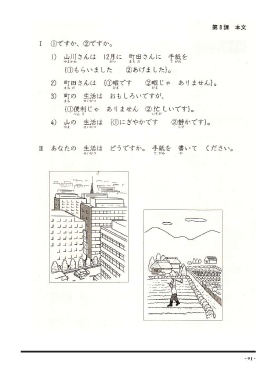 第8課　本文
Ⅰ　①ですか、②ですか。
1)　山川さんは　12月に　町田さんに　手紙を
{①もらいました　②あげました}。
2)　町田さんは　{①暇です　②暇じゃ　ありません}。
3)　町の　生活は　おもしろいですが、
{①便利じゃ　ありません　②忙しいです}。
4)　山の　生活は　{①にぎやかです　②静かです}。
Ⅱ　あなたの　生活は　どうですか。手紙を　書いて　ください。